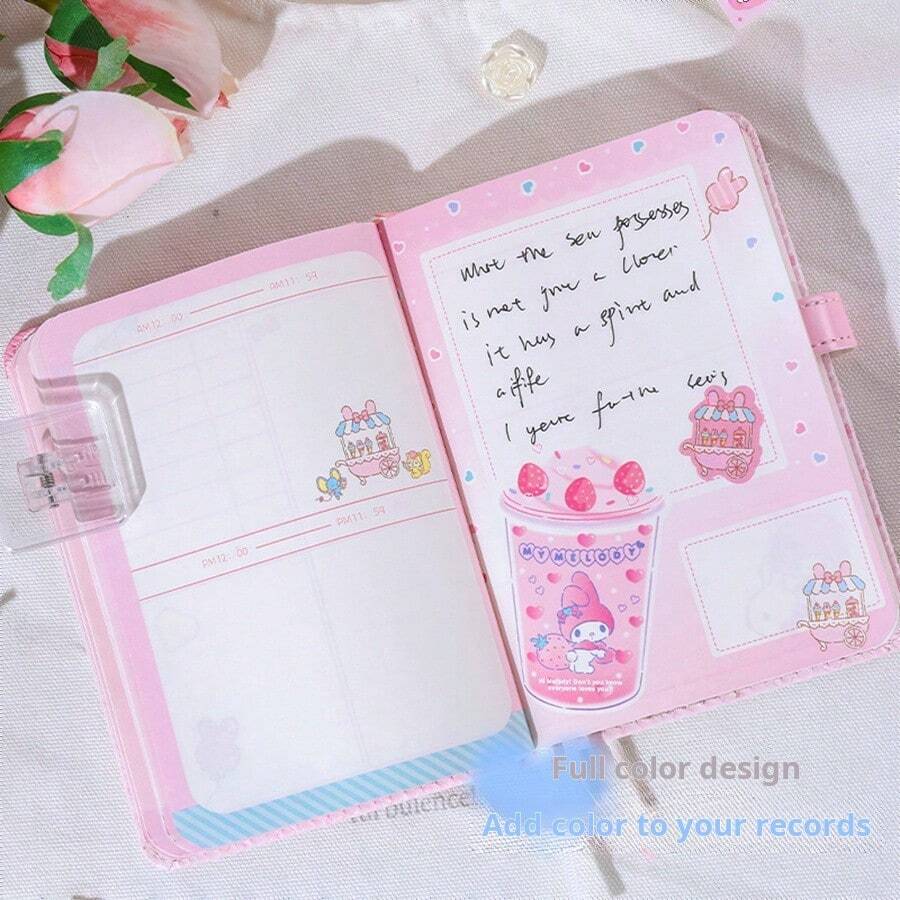 AM12 : 00
AM11 : 59
PM12 : 00
PM11 : 59
what the sea possesses
is not
it has a spirit and
a life
I
MY MELODY
Hi Melody! Don't you know
everyone loves you?!
Full color design
Add color to your records